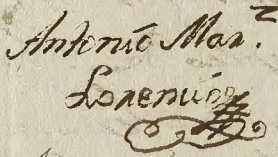 Antonio Mar.z
Lorenio